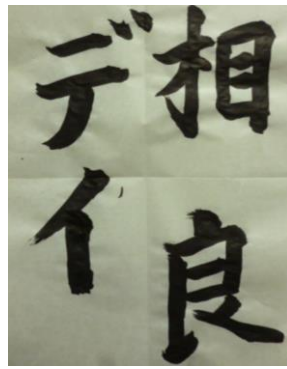 相良
デイ